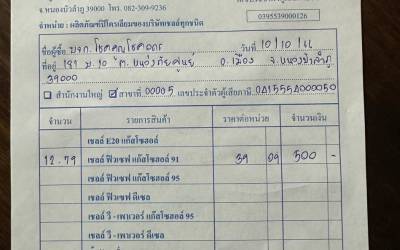 จ.หนองบัวลำภู 39000 โทร. 082-309-9236
0395539000126
จำหน่าย : ผลิตภัณฑ์ปิโตรเลียมของบริษัทเชลล์ทุกชนิด
ชื่อผู้ซื้อ หจก. โชคคุณโชคถาวร วันที่ 10/10/66
ที่อยู่ 181 ม.10 ต. หนองภัยศูนย์ อ.เมือง จ.หนองบัวลำภู
39000
สำนักงานใหญ่ สาขาที่ 00005 เลขประจำตัวผู้เสียภาษี 0415554000050
จำนวน รายการสินค้า ราคาต่อหน่วย จำนวนเงิน
เชลล์ E20 แก๊สโซฮอล์
12.79 เชลล์ ฟิวเซฟ แก๊สโซฮอล์ 91 39 09 500 -
เชลล์ ฟิวเซฟ แก๊สโซฮอล์ 95
เชลล์ ฟิวเซฟ ดีเซล
เชลล์ วี - เพาเวอร์ แก๊สโซฮอล์ 95
เชลล์ วี - เพาเวอร์ ดีเซล